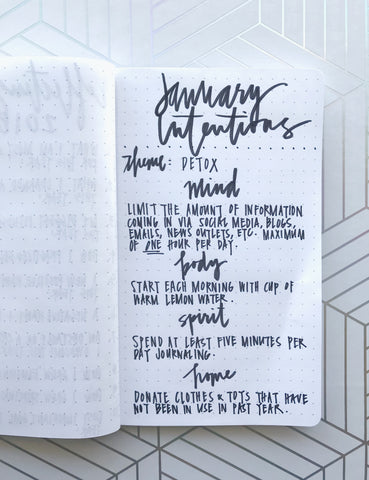 January
Intentions
theme: DETOX
mind
LIMIT THE AMOUNT OF INFORMATION
COMING IN VIA SOCIAL MEDIA, BLOGS,
EMAILS, NEWS OUTLETS, ETC. MAXIMUM
OF ONE HOUR PER DAY.
body
START EACH MORNING WITH CUP OF
WARM LEMON WATER.
spirit
SPEND AT LEAST FIVE MINUTES PER
DAY JOURNALING.
home
DONATE CLOTHES & TOYS THAT HAVE
NOT BEEN IN USE IN PAST YEAR.